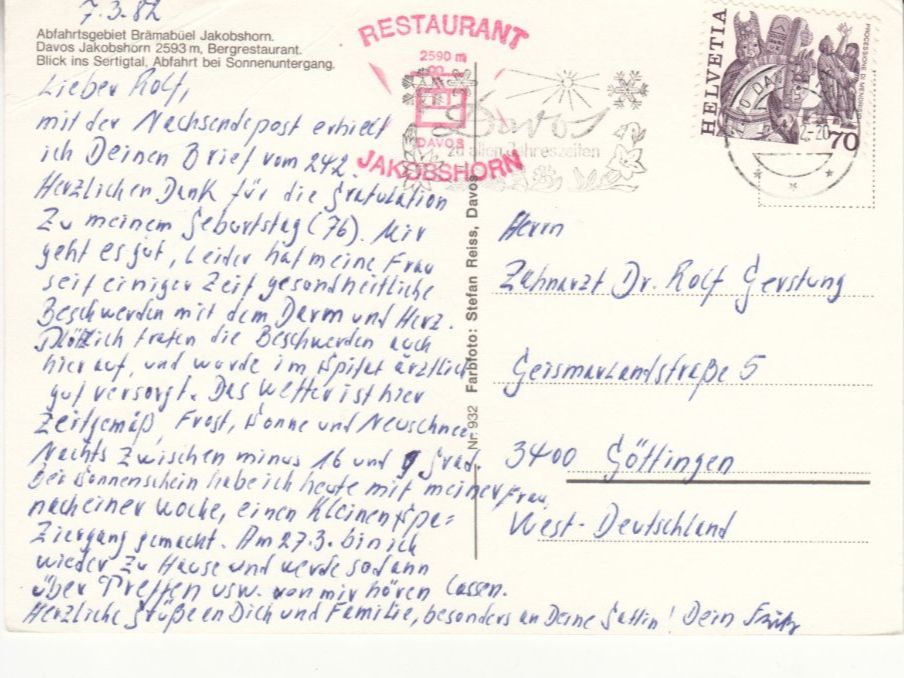 7.3.82
Abfahrtsgebiet Brämabüel Jakobshorn.
Davos Jakobshorn 2593 m, Bergrestaurant.
Blick ins Sertigtal, Abfahrt bei Sonnenuntergang.
Lieber Rolf,
mit der Nachsendepost erhielt
ich Deinen Brief vom 24.2.
Herzlichen Dank für die Gratulation
zu meinem Geburtstag (76). Mir
geht es gut, leider hat meine Frau
seit einiger Zeit gesundheitliche
Beschwerden mit dem Darm und Herz.
Plötzlich traten die Beschwerden auch
hier auf, und wurde im Spital ärztlich
gut versorgt. Das Wetter ist hier
Zeitgemäß, Frost, Sonne und Neuschnee.
Nachts zwischen minus 16 und 9 Grad.
Bei Sonnenschein habe ich heute mit meiner Frau,
nach einer Woche, einen kleinen Spa=
ziergang gemacht. Am 27.3. bin ich
wieder zu Hause und werde sodann
über Treffen usw. von mir hören lassen.
Herzliche Grüße an Dich und Familie, besonders an Deine Gattin! Dein Fritz
Nr. 932 Farbfoto: Stefan Reiss, Davos
RESTAURANT
2590 m
DAVOS
JAKOBSHORN
Davos
zu allen Jahreszeiten
HELVETIA
70
Herrn
Zahnarzt Dr. Rolf Gerstung
Geismarlandstraße 5
3400 Göttingen
West-Deutschland